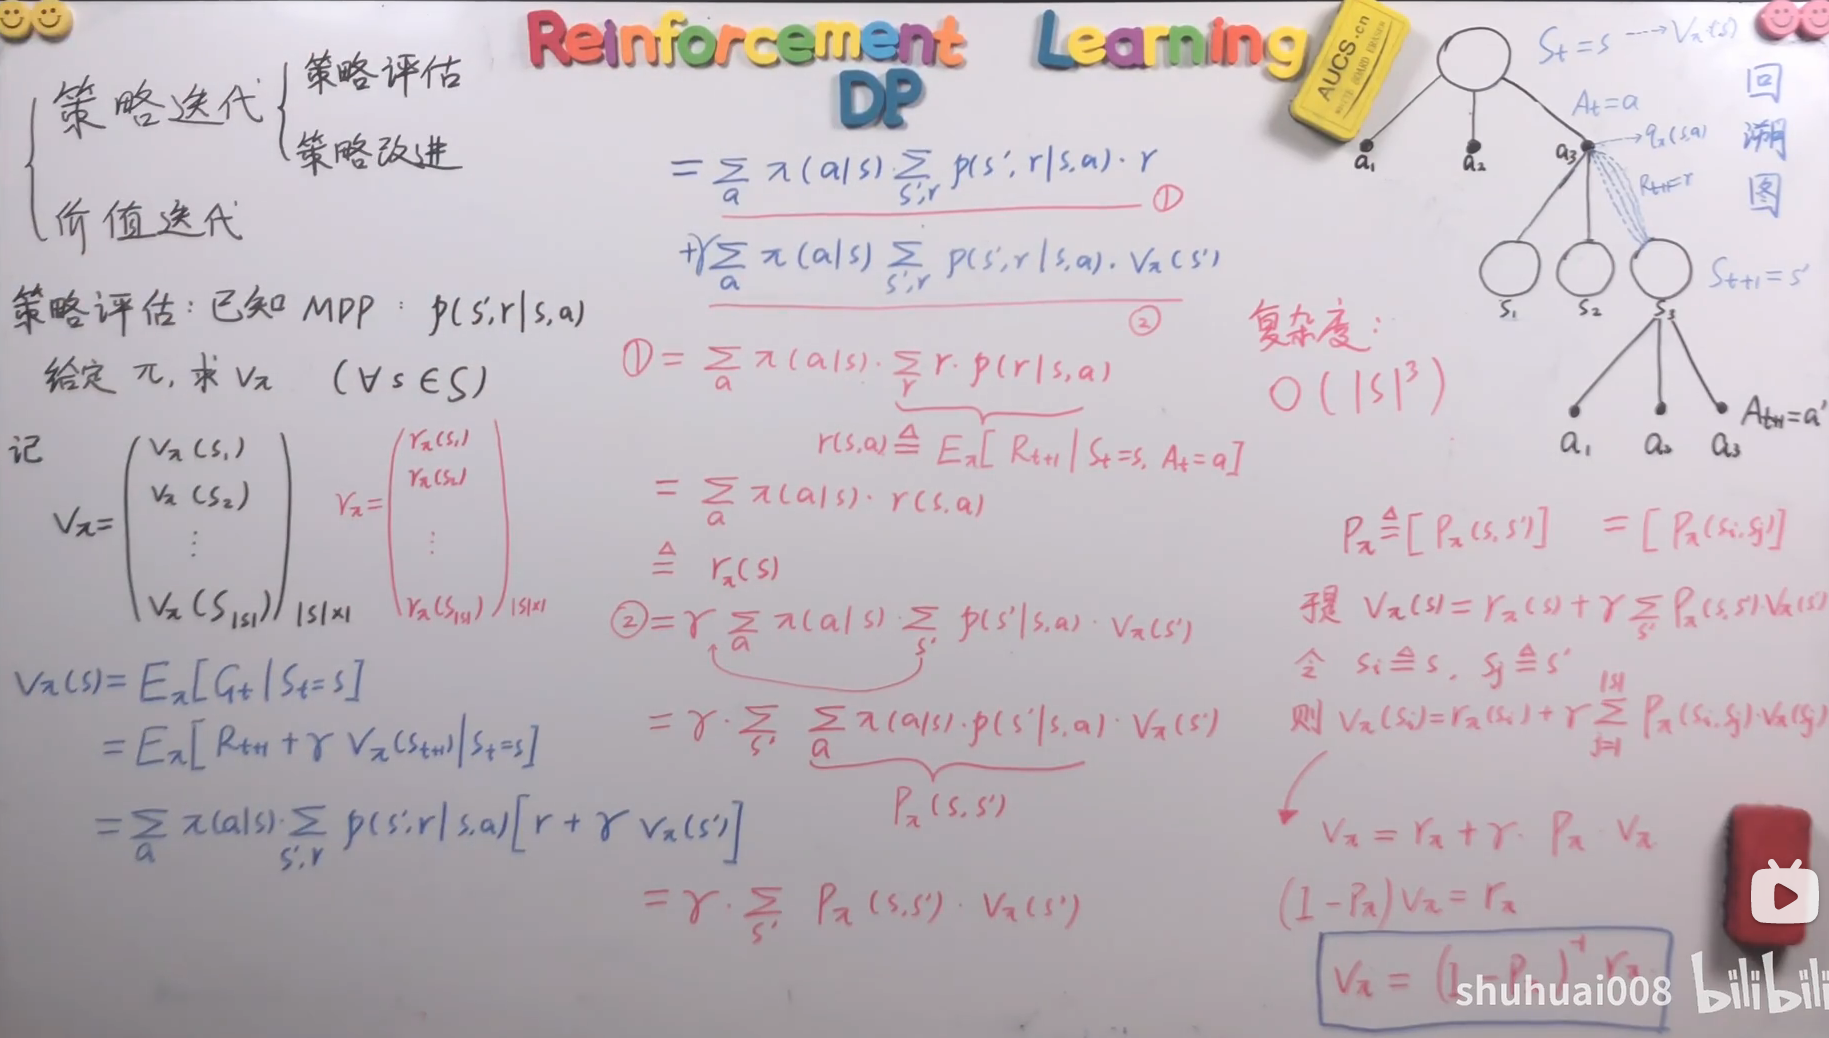 Reinforcement Learning
DP
AUCS.cn
WHITE BOARD ERASER
策略迭代 { 策略评估
策略改进
价值迭代
策略评估: 已知 MPP : p(s',r|s,a)
给定 π, 求 Vπ (∀s∈S)
记
Vπ = ( Vπ(s₁)
Vπ(s₂)
⋮
Vπ(s|s|) ) |S|×1
rπ = ( rπ(s₁)
rπ(s₂)
⋮
rπ(s|s|) ) |S|×1
Vπ(s) = Eπ[Gt | St=s]
= Eπ[Rt+1 + γ Vπ(St+1) | St=s]
= Σa π(a|s)·Σs',r p(s',r|s,a)[r + γ Vπ(s')]
= Σa π(a|s) Σs',r p(s',r|s,a)·r
①
+γ Σa π(a|s) Σs',r p(s',r|s,a)·Vπ(s')
②
① = Σa π(a|s)·Σr r·p(r|s,a)
r(s,a) ≜ Eπ[Rt+1 | St=s, At=a]
= Σa π(a|s)·r(s,a)
≜ rπ(s)
② = γ Σa π(a|s)·Σs' p(s'|s,a)·Vπ(s')
= γ·Σs' Σa π(a|s)·p(s'|s,a)·Vπ(s')
Pπ(s,s')
= γ·Σs' Pπ(s,s')·Vπ(s')
复杂度:
O(|S|³)
St=s → Vπ(s)
At=a
a₁ a₂ a₃ → qπ(s,a)
Rt+1=r
s₁ s₂ s₃
St+1=s'
a₁ a₂ a₃
At+1=a'
回溯图
Pπ ≜ [Pπ(s,s')] = [Pπ(si,sj)]
于是 Vπ(s) = rπ(s) + γ Σs' Pπ(s,s')·Vπ(s')
令 si ≜ s, sj ≜ s'
则 Vπ(si) = rπ(si) + γ Σ|S|j=1 Pπ(si,sj)·Vπ(sj)
Vπ = rπ + γ· Pπ · Vπ
(I-Pπ)Vπ = rπ
Vπ = (I-Pπ)⁻¹ rπ
shuhuai008 bilibili